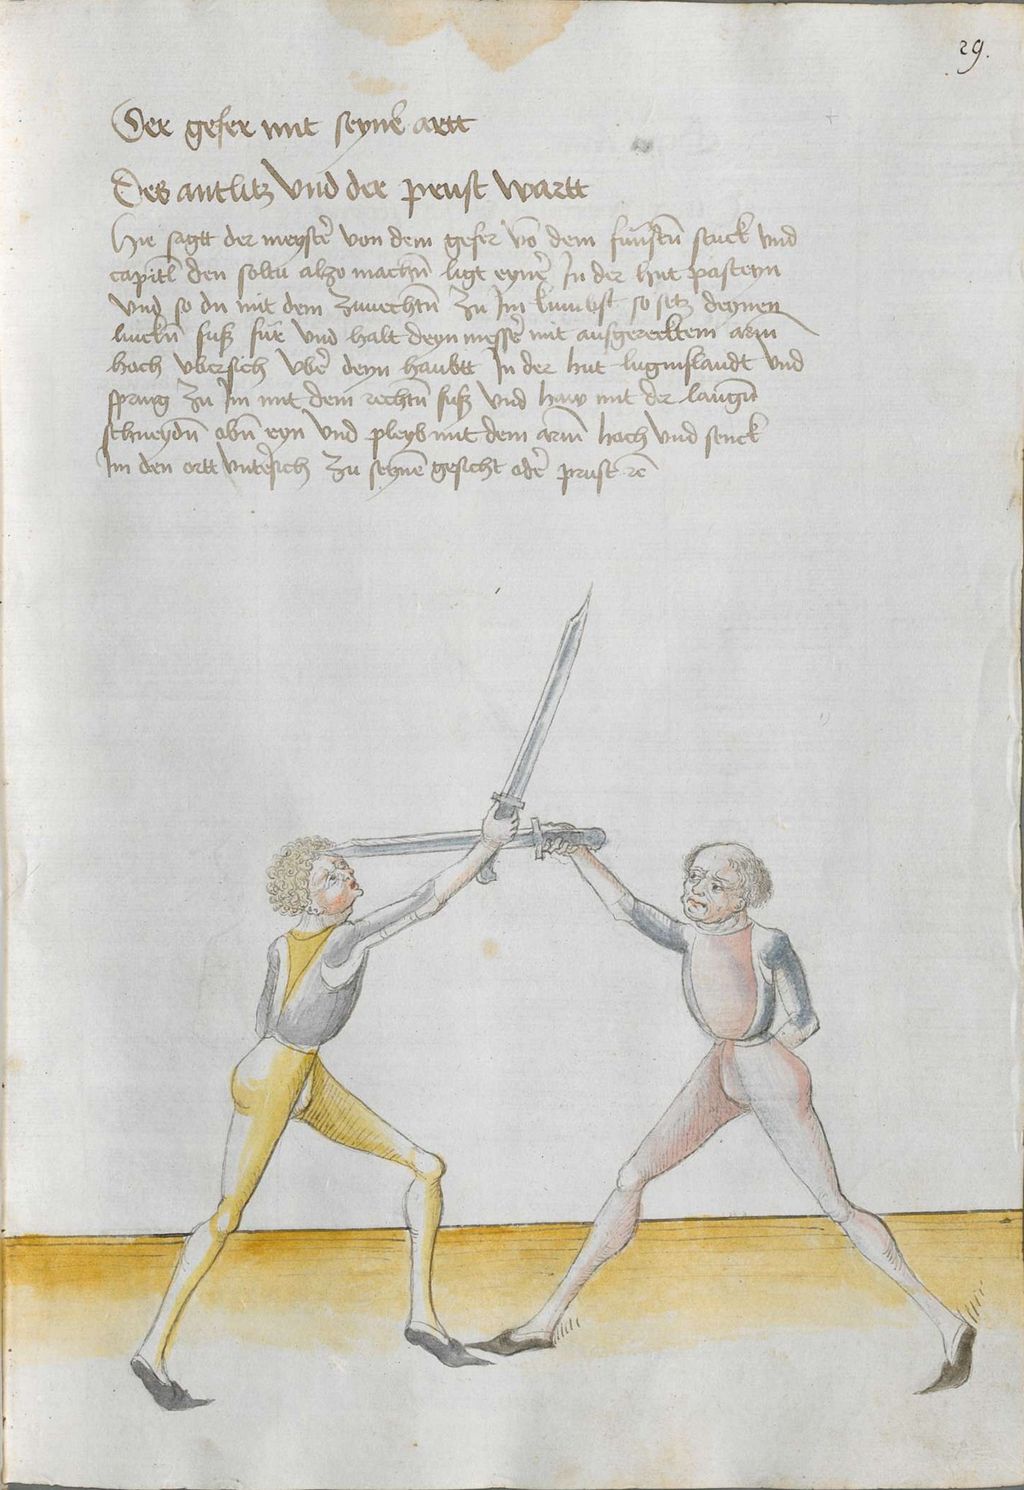 29.
Der gefer mit seyne artt
Des antlitz vnd der prust wartt
Hie sagtt der meyster̄ von dem gefer vō dem funftn̄ stuck vnd
capitl den soltu alzo machn̄ ligt eyner̄ In der hut pasteyn
Vnd so du mit dem zuuechtn̄ zu Im kumbst so setz deynen
linckn̄ fuß für vnd halt deyn messer̄ mit aufgerecktem arm̄
hoch vbersich vber̄ deyn haubtt In der hut luginslandt vnd
sprang zu im mit dem rechtn̄ fuß vnd haw mit der langn̄
schneydn̄ obn̄ eyn vnd pleyb mit dem arm̄ hoch vnd senck
Im den ortt vnter̄sich zu seynē gesicht oder̄ prust ꝛc̄